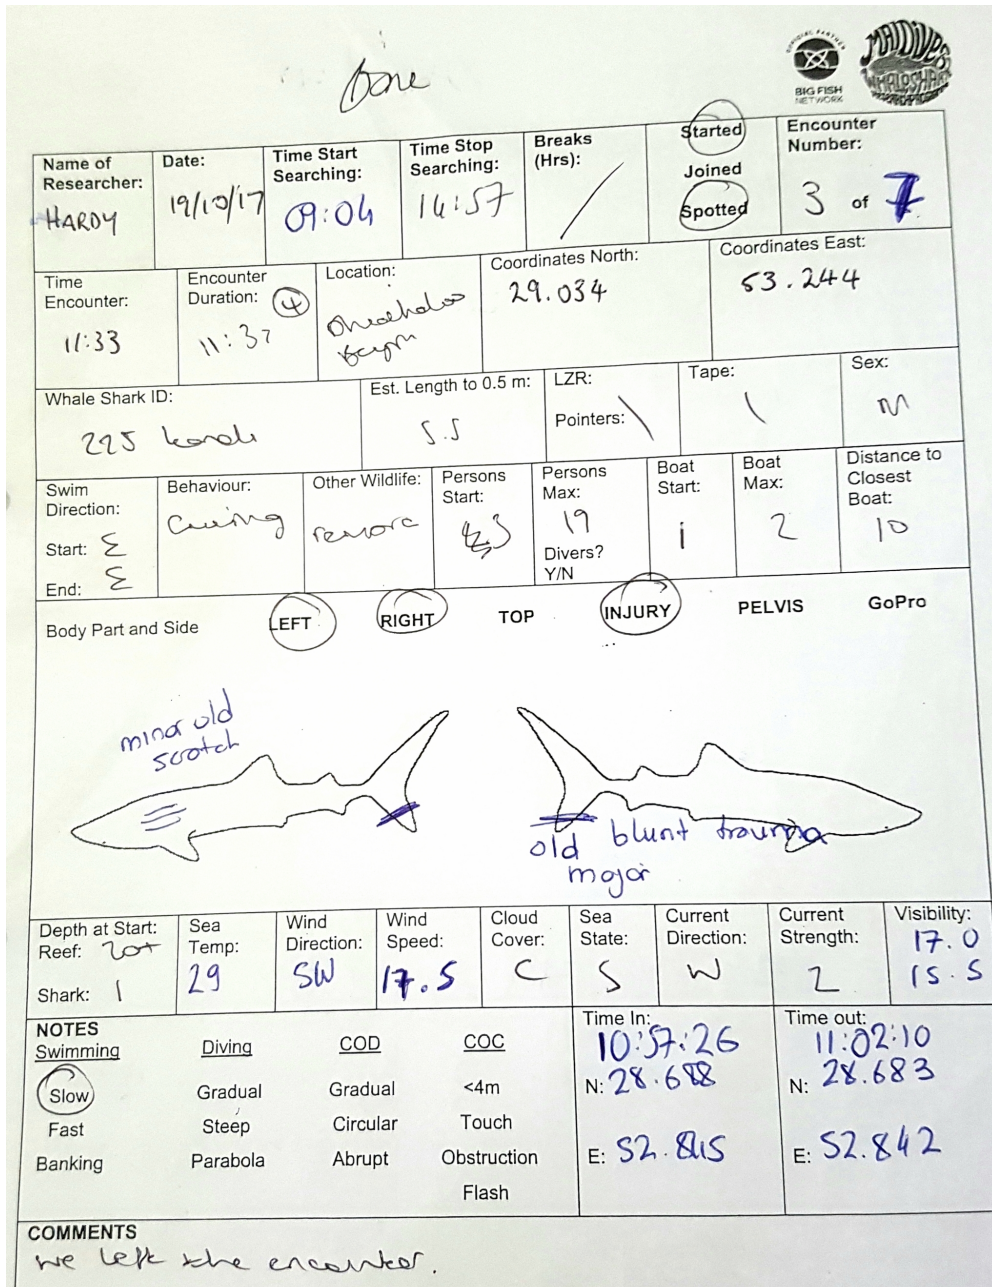 Done
OFFICIAL PARTNER
BIG FISH
NETWORK
MALDIVES
WHALESHARK
Name of Researcher: HARDY
Date: 19/10/17
Time Start Searching: 09:04
Time Stop Searching: 14:57
Breaks (Hrs): /
Started
Joined
Spotted
Encounter Number: 3 of 7
Time Encounter: 11:33
Encounter Duration: 4 11:37
Location:
Coordinates North: 29.034
Coordinates East: 53.244
Whale Shark ID: 225
Est. Length to 0.5 m: 5.5
LZR: Pointers: \
Tape: \
Sex: M
Swim Direction:
Start: E
End: E
Behaviour:
Other Wildlife: remora
Persons Start:
Persons Max: 19
Divers? Y/N
Boat Start: 1
Boat Max: 2
Distance to Closest Boat: 10
Body Part and Side LEFT RIGHT TOP INJURY PELVIS GoPro
minor old
scratch
old blunt trauma
major
Depth at Start:
Reef: 20+
Shark: 1
Sea Temp: 29
Wind Direction: SW
Wind Speed: 17.5
Cloud Cover: C
Sea State: S
Current Direction: W
Current Strength: 2
Visibility: 17.0
15.5
NOTES
Swimming Diving COD COC
Slow Gradual Gradual <4m
Fast Steep Circular Touch
Banking Parabola Abrupt Obstruction
Flash
Time In: 10:57:26
N: 28.688
E: 52.845
Time out: 11:02:10
N: 28.683
E: 52.842
COMMENTS
we left the encounter.